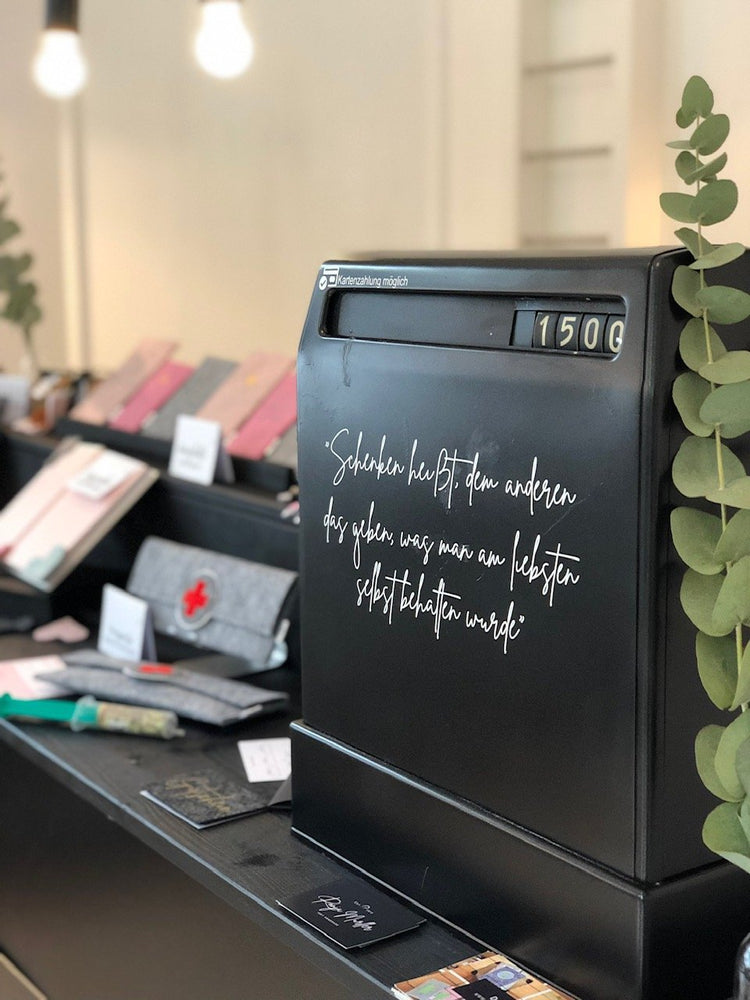 Kartenzahlung möglich
1500
"Schenken heißt, dem anderen
das geben, was man am liebsten
selbst behalten würde"